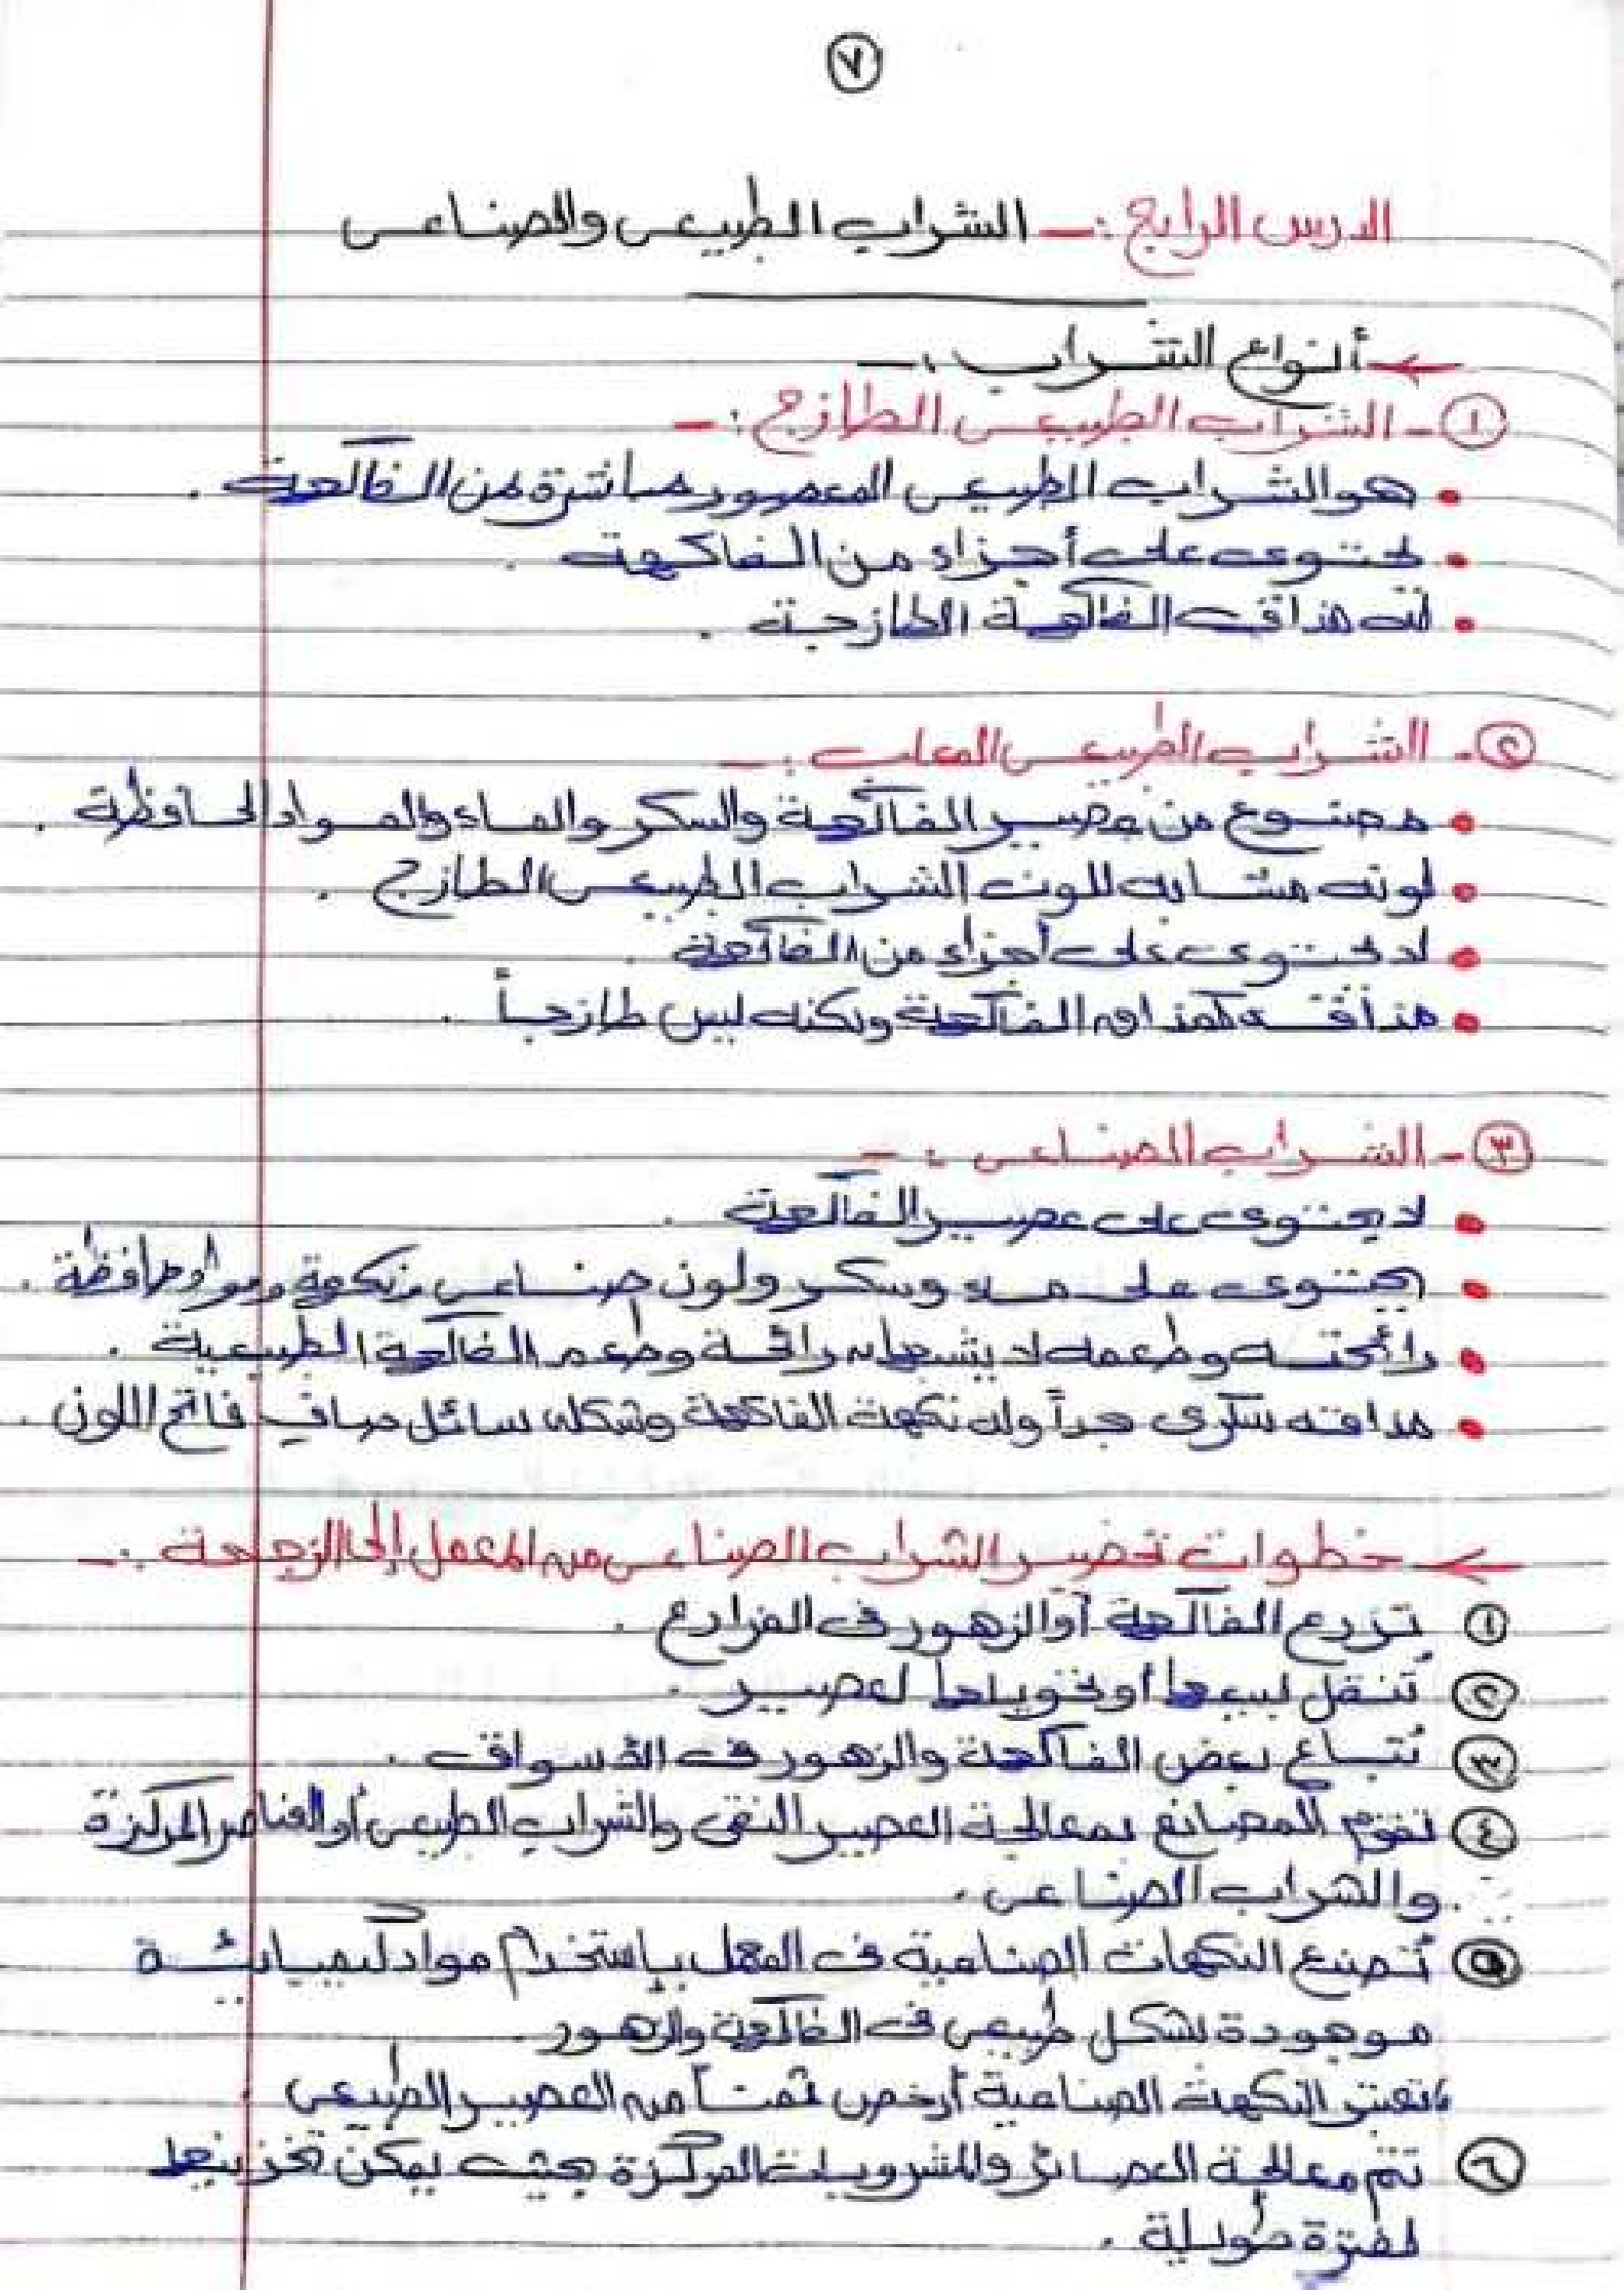 ٧
الدرس الرابع :- الشراب الطبيعى والصناعى
أنواع الشراب :-
١- الشراب الطبيعى الطازج :-
• هو الشراب الطبيعى المعصور مباشرة من الفاكهة .
• يحتوى على أجزاء من الفاكهة .
• له مذاق الفاكهة الطازجة .
٢- الشراب الطبيعى المعلب :-
• مصنوع من عصير الفاكهة والسكر والماء والمواد الحافظة .
• لونه مشابه للون الشراب الطبيعى الطازج .
• لا يحتوى على أجزاء من الفاكهة .
• مذاقه كمذاق الفاكهة ولكنه ليس طازجاً .
٣- الشراب الصناعى :-
• لا يحتوى على عصير الفاكهة .
• يحتوى على ماء وسكر ولون صناعى ونكهة ومواد حافظة .
• رائحته وطعمه لا يشبهان رائحة وطعم الفاكهة الطبيعية .
• مذاقه سكرى جداً وله نكهة الفاكهة وشكله سائل صافى فاتح اللون .
خطوات تحضير الشراب الصناعى من المعمل إلى الزجاجة :-
١ تزرع الفاكهة أو الزهور فى المزارع .
٢ تُنقل لبيعها أو تحويلها لعصير .
٣ تُباع بعض الفاكهة والزهور فى الأسواق .
٤ تقوم المصانع بمعالجة العصير النقى والشراب الطبيعى أو العناصر المركزة
والشراب الصناعى .
٥ تُصنع النكهات الصناعية فى المعمل بإستخدام مواد كيميائية
موجودة بشكل طبيعى فى الفاكهة والزهور
النكهة الصناعية أرخص ثمناً من العصير الطبيعى .
٦ تتم معالجة العصائر والمشروبات المركزة بحيث يمكن تخزينها
لفترة طويلة .